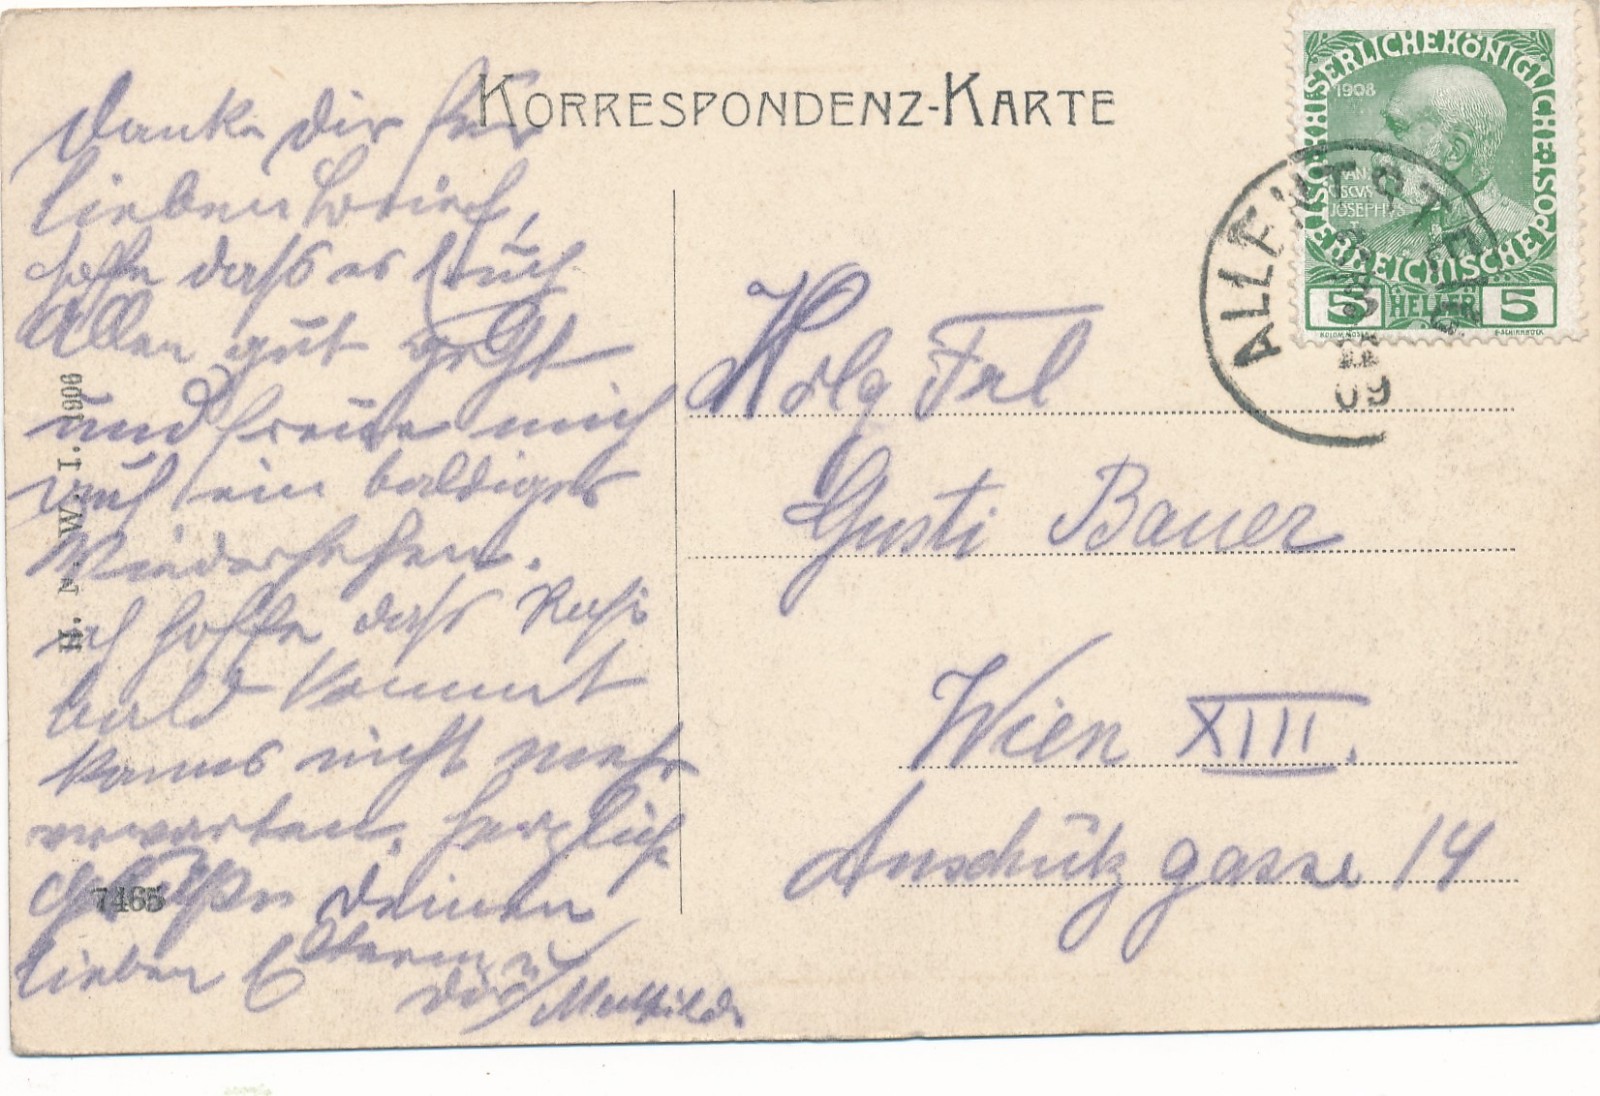 KORRESPONDENZ-KARTE
Danke dir für
lieben Brief,
hoffe dass es Euch
Allen gut geht
und freue mich
auf ein baldiges
Wiedersehen.
ich hoffe dass Resi
bald kommt
kanns nicht mehr
erwarten. Herzliche
Grüße Deinen
lieben Eltern u
dir Mathilde
H. W. I. 1906
7465
KAISERLICHE KÖNIGLICHE ÖSTERREICHISCHE POST
1908
FRANCISCVS
JOSEPHVS
5 HELLER 5
ALLENTST
09
Frl
Gusti Bauer
Wien XIII.
Anschütz gasse 14